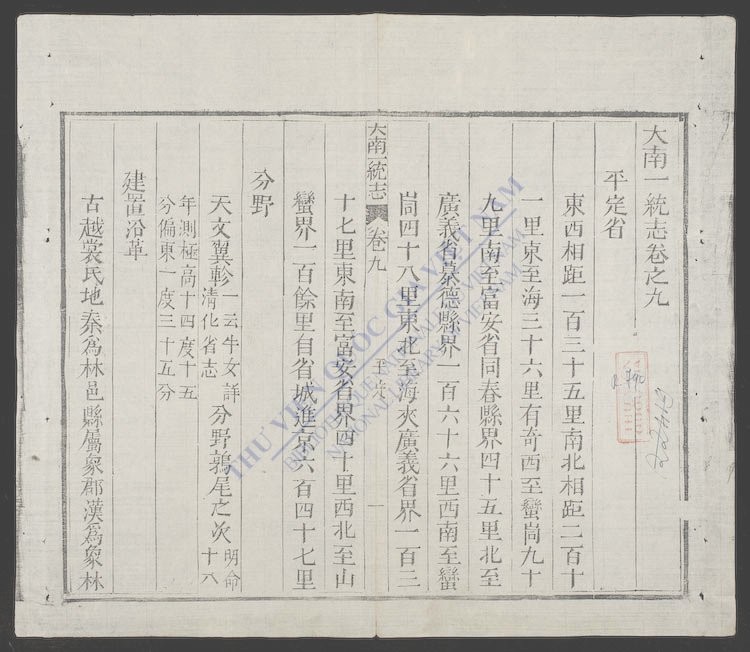 大南一統志卷之九
平定省
東西相距一百三十五里南北相距二百十
一里東至海三十六里有奇西至蠻峝九十
九里南至富安省同春縣界四十五里北至
廣義省慕德縣界一百六十六里西南至蠻
峝四十八里東北至海夾廣義省界一百三
大南一統志 卷九 平定 一
十七里東南至富安省界四十里西北至山
蠻界一百餘里自省城進京六百四十七里
分野
天文翼軫一云牛女詳清化省志分野鶉尾之次明命十八
年測極高十四度十五分偏東一度三十五分
建置沿革
古越裳氏地秦為林邑縣屬象郡漢為象林
THƯ VIỆN QUỐC GIA VIỆT NAM
BIBLIOTHÈQUE NATIONALE DU VIETNAM
NATIONAL LIBRARY OF VIETNAM